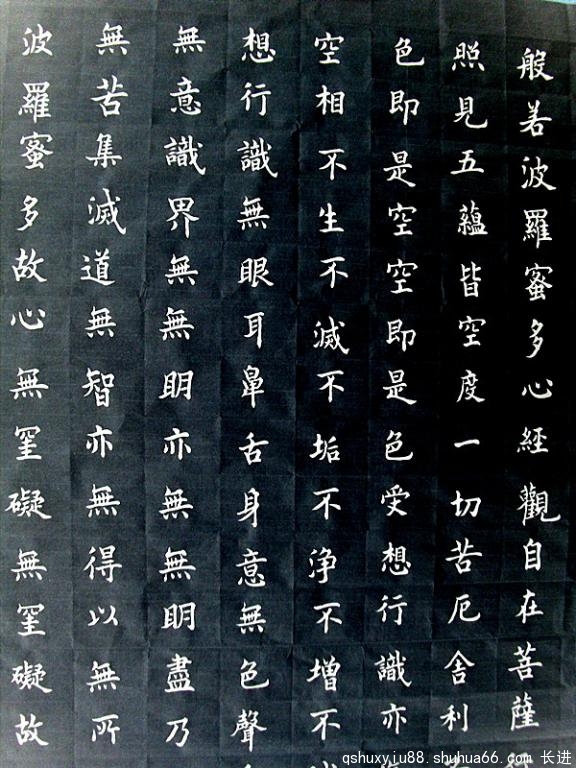 般若波羅蜜多心經觀自在菩薩
照見五蘊皆空度一切苦厄舍利
色即是空空即是色受想行識亦
空相不生不滅不垢不淨不增不
想行識無眼耳鼻舌身意無色聲
無意識界無無明亦無無明盡乃
無苦集滅道無智亦無得以無所
波羅蜜多故心無罣礙無罣礙故
qshuxyju88.shuhua66.com 长进